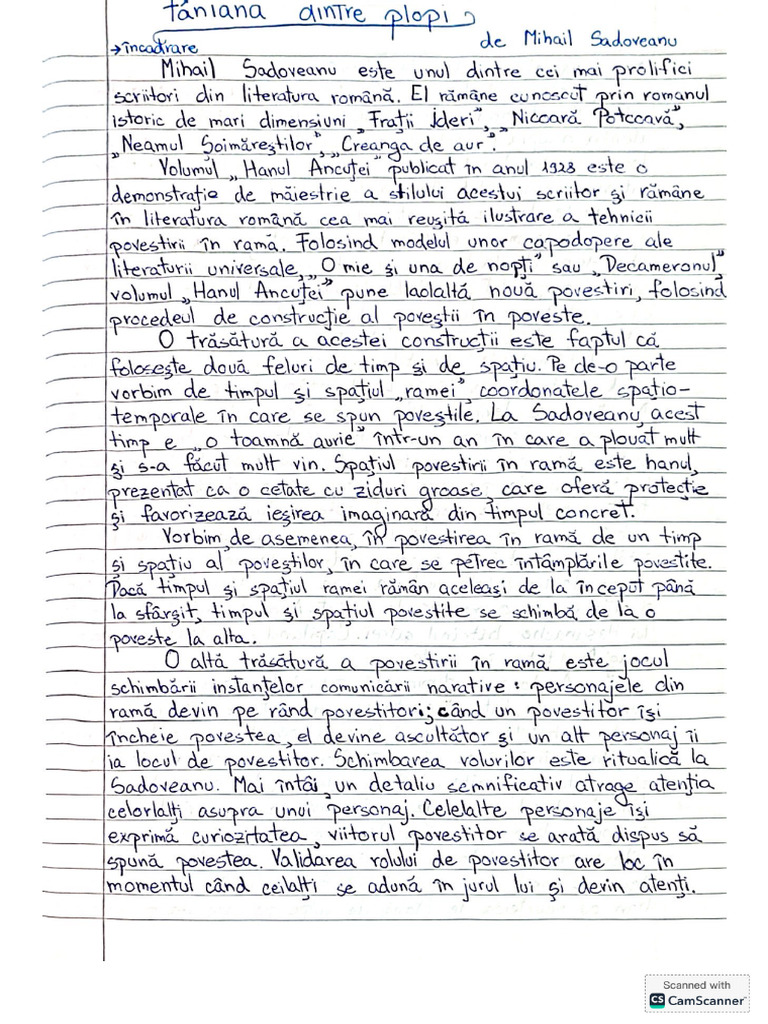 fâniana dintre plopi
→încadrare de Mihail Sadoveanu
Mihail Sadoveanu este unul dintre cei mai prolifici
scriitori din literatura română. El rămâne cunoscut prin romanul
istoric de mari dimensiuni „Frații Jderi", „Niccară Potccavă",
„Neamul Șoimăreștilor", „Creanga de aur".
Volumul „Hanul Ancuței" publicat în anul 1928 este o
demonstrație de măiestrie a stilului acestui scriitor și rămâne
în literatura română cea mai reușită ilustrare a tehnicii
povestirii în ramă. Folosind modelul unor capodopere ale
literaturii universale, „O mie și una de nopți" sau „Decameronul"
volumul „Hanul Ancuței" pune laolaltă nouă povestiri, folosind
procedeul de construcție al poveștii în poveste.
O trăsătură a acestei construcții este faptul că
folosește două feluri de timp și de spațiu. Pe de-o parte
vorbim de timpul și spațiul „ramei", coordonatele spatio-
temporale în care se spun poveștile. La Sadoveanu, acest
timp e „o toamnă aurie" într-un an în care a plouat mult
și s-a făcut mult vin. Spațiul povestirii în ramă este hanul,
prezentat ca o cetate cu ziduri groase, care oferă protecție
și favorizează ieșirea imaginară din timpul concret.
Vorbim, de asemenea, în povestirea în ramă de un timp
și spațiu al poveștilor, în care se petrec întâmplările povestite.
Dacă timpul și spațiul ramei rămân aceleași de la început până
la sfârșit, timpul și spațiul povestite se schimbă de la o
poveste la alta.
O altă trăsătură a povestirii în ramă este jocul
schimbării instanțelor comunicării narative: personajele din
ramă devin pe rând povestitori; când un povestitor își
încheie povestea, el devine ascultător și un alt personaj îi
ia locul de povestitor. Schimbarea volurilor este ritualică la
Sadoveanu. Mai întâi, un detaliu semnificativ atrage atenția
celorlalți asupra unui personaj. Celelalte personaje își
exprimă curiozitatea, viitorul povestitor se arată dispus să
spună povestea. Validarea rolului de povestitor are loc în
momentul când ceilalți se adună în jurul lui și devin atenți.
Scanned with
CS CamScanner